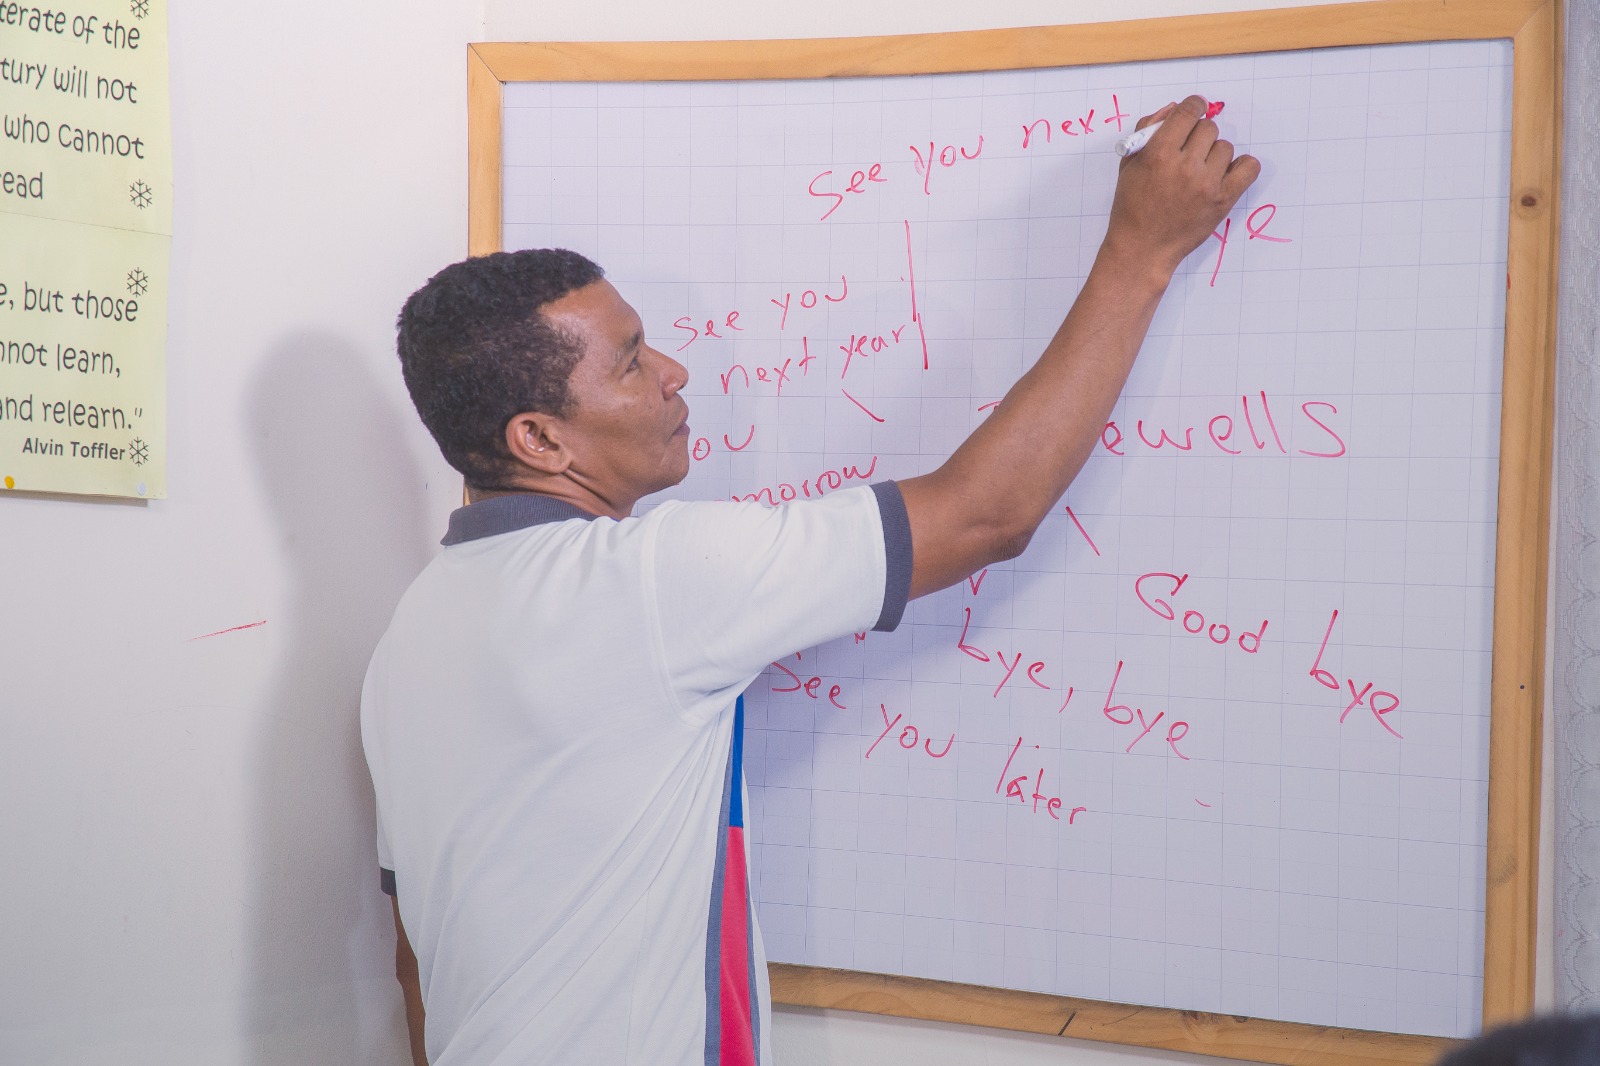 terate of the
tury will not
who cannot
ead
e, but those
nnot learn,
and relearn."
Alvin Toffler
See you next
ye
See you
next year
ou
morrow
ewells
Good bye
bye, bye
See you later